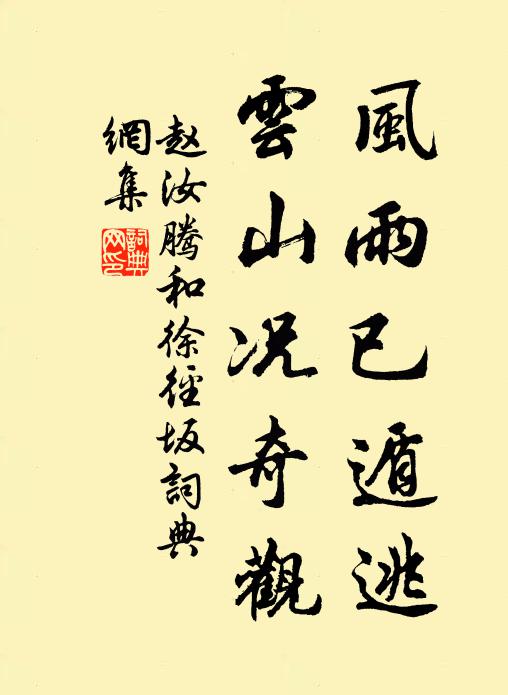 風雨已遁逃
雲山况奇觀
赵汝騰和徐徑坂詞典
網集
詞典
网印